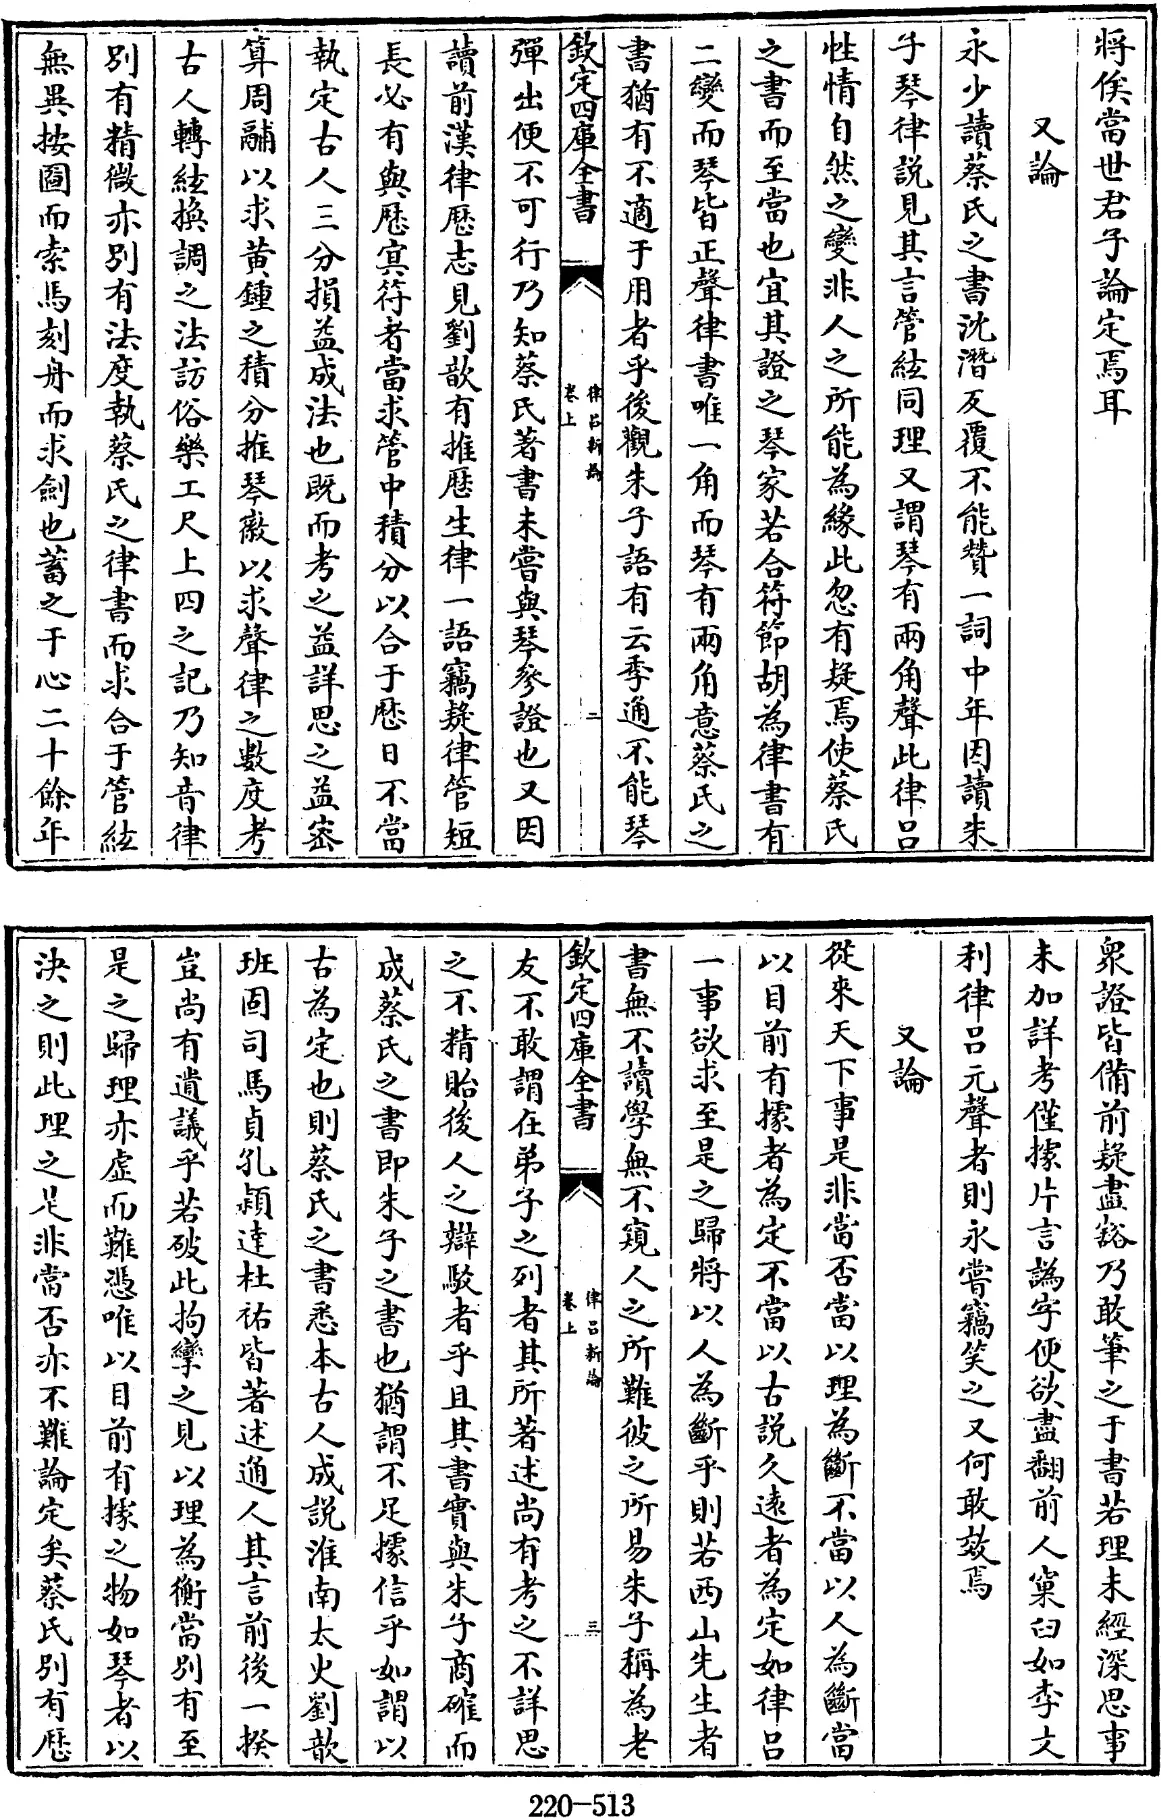 將俟當世君子論定焉耳
又論
永少讀蔡氏之書沈潛反覆不能贊一詞中年因讀朱
子琴律說見其言管絃同理又謂琴有兩角聲此律呂
性情自然之變非人之所能為緣此忽有疑焉使蔡氏
之書而至當也宜其證之琴家若合符節胡為律書有
二變而琴皆正聲律書唯一角而琴有兩角意蔡氏之
書猶有不適于用者乎後觀朱子語有云季通不能琴
欽定四庫全書
律呂新論
卷上
二
彈出便不可行乃知蔡氏著書未嘗與琴參證也又因
讀前漢律歴志見劉歆有推歴生律一語竊疑律管短
長必有與歴冥符者當求管中積分以合于歴日不當
執定古人三分損益成法也既而考之益詳思之益密
算周鬴以求黃鍾之積分推琴徽以求聲律之數度考
古人轉絃換調之法訪俗樂工尺上四之記乃知音律
別有精微亦別有法度執蔡氏之律書而求合于管絃
無異按圖而索馬刻舟而求劍也蓄之于心二十餘年
衆證皆備前疑盡谿乃敢筆之于書若理未經深思事
未加詳考僅據片言譌字便欲盡翻前人窠臼如李文
利律呂元聲者則永嘗竊笑之又何敢效焉
又論
從來天下事是非當否當以理為斷不當以人為斷當
以目前有據者為定不當以古說久遠者為定如律呂
一事欲求至是之歸將以人為斷乎則若西山先生者
書無不讀學無不窺人之所難彼之所易朱子稱為老
欽定四庫全書
律呂新論
卷上
三
友不敢謂在弟子之列者其所著述尚有考之不詳思
之不精貽後人之辯駁者乎且其書實與朱子商確而
成蔡氏之書即朱子之書也猶謂不足據信乎如謂以
古為定也則蔡氏之書悉本古人成說淮南太火劉歆
班固司馬貞孔穎達杜祐皆著述通人其言前後一揆
豈尚有遺議乎若破此拘攣之見以理為衡當別有至
是之歸理亦虛而難憑唯以目前有據之物如琴者以
決之則此理之是非當否亦不難論定矣蔡氏別有歴
220-513